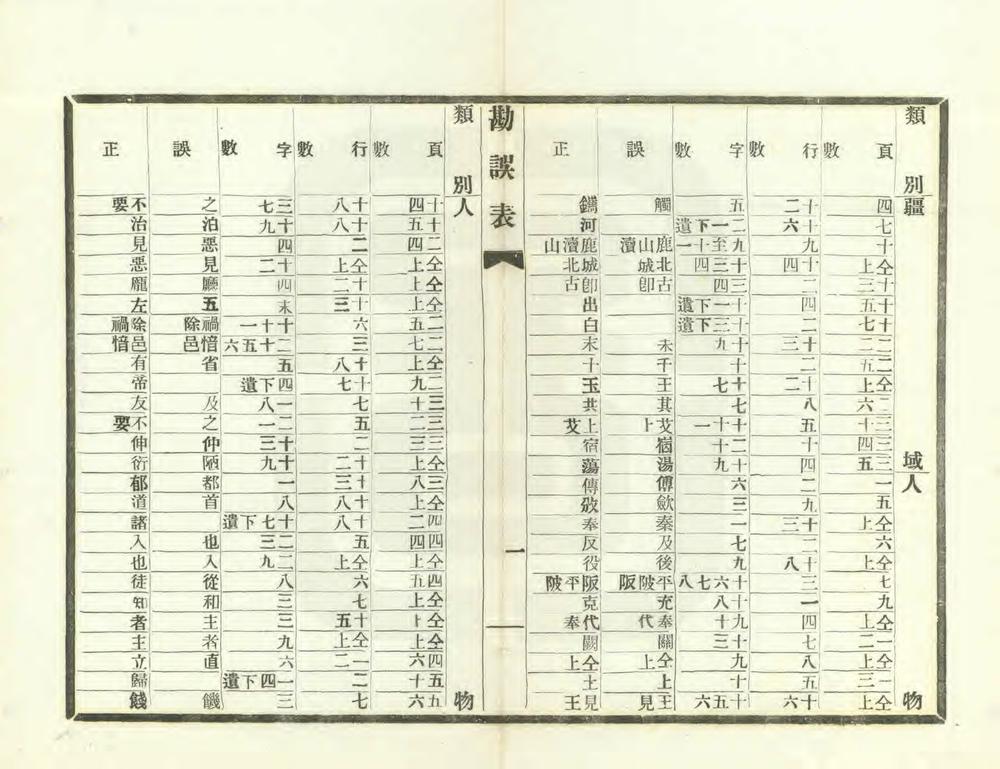 類別 頁數 行數 字數 誤 正
疆域
四 十二 五 觸
七 十六 二一下遺 河
十 九 九至十一 鹿山瀆 鹿瀆山
仝上 十四 十三四 北城 城北
十三 二 三四 古卽 卽古
十五 四 十一下遺 出
十七 二 十三下遺 白
二二 十三 十九 未 末
二五 二 十 千 十
仝上 十二 十七 王 玉
二六 八 七 其 共
三十 五 十十一 艾上 上艾
三四 十 十二 宿
三五 四 十九 湯 蕩
人物
一 二 六 傅 傳
五 九 三 歛
仝上 十三 一 秦 奉
六 二 七 及 反
仝上 十八 九 後 役
七 三 十六七八 平陂阪 阪平陂
九 一 十八 充 克
仝上 四 九十 奉代 代奉
一二 七 十三 關 闕
仝上 八 九 仝上 仝上
一三 五 十 上 土
仝上 十六 十五六 王見 見王
勘誤表
一
類別 頁數 行數 字數 誤 正
人物
十四 十八 三七 之 不要
十五 十八 十九 泊 治
二四 二 四 惡 見
仝上 仝上 十二 見 惡
仝上 十二 四 廳 龐
仝上 十三 末 五 左
二五 六 十十一 禍除 除禍
二七 三 二十五六 愔邑 邑愔
仝上 十八 五 省 有
二九 十七 四下遺 帝
三十 七 一八 及 友
三二 五 二一 之 不要
三三 二 十三 仲 伸
仝上 十二 十九 陋 衍
三八 十三 一 都 郁
仝上 十八 八 首 道
四二 十八 十七下遺 諸
四四 五 二三 也 入
仝上 仝上 二九 入 也
四五 六 八 從 徒
仝上 七 三 和 知
仝上 十五 三 主 者
仝上 仝上 九 者 主
四六 一二 六 直 立
五十 二 一四下遺 歸
九六 七 三 饑